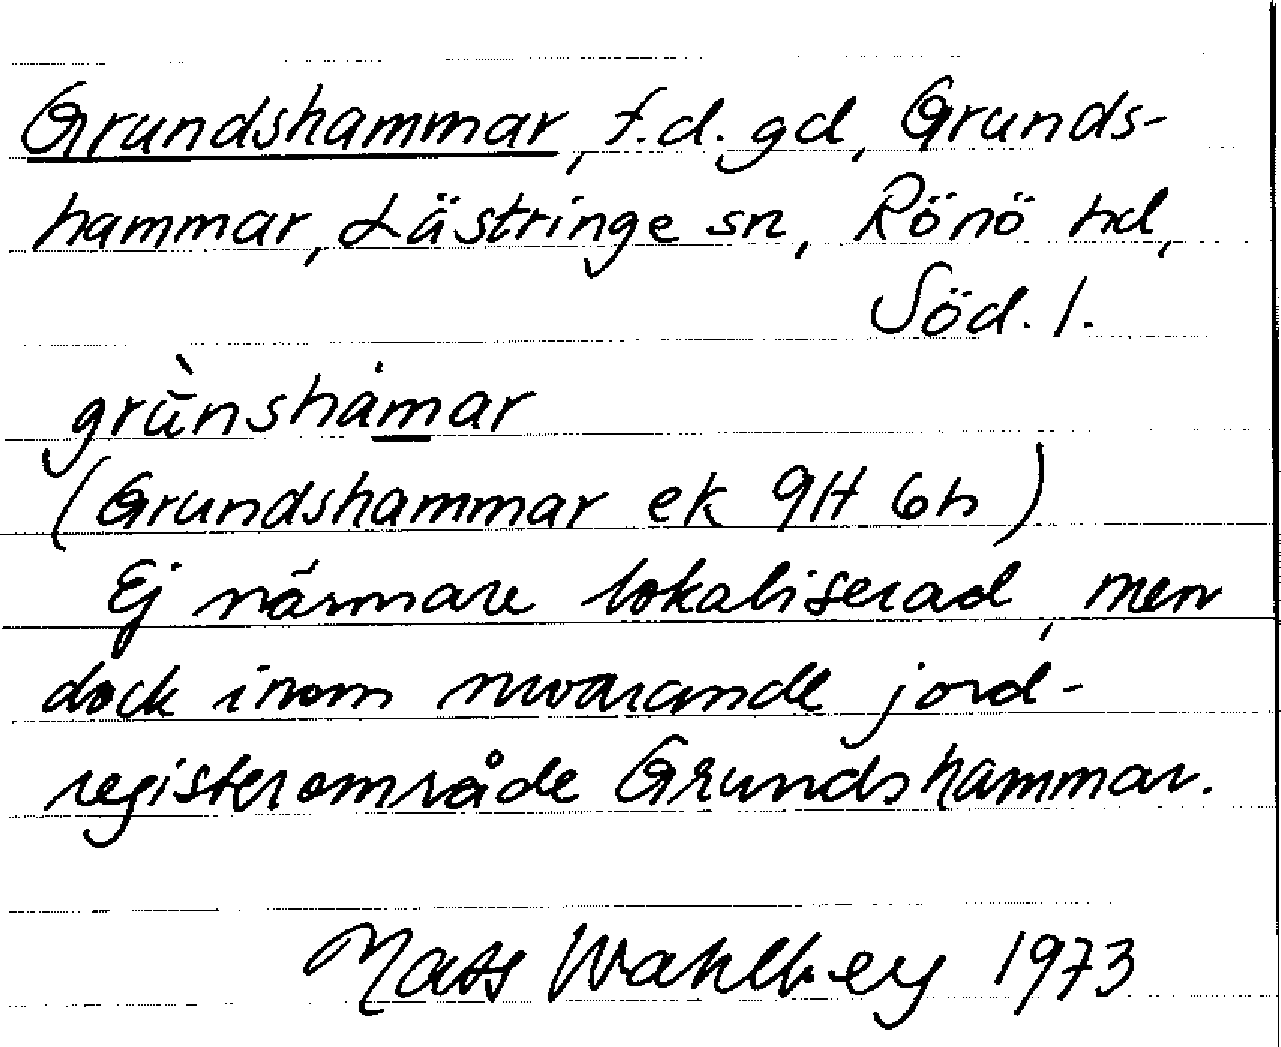 Grundshammar, f.d. gd, Grunds-
hammar, Lästringe sn, Rönö hd,
Söd. l.
grù̄nshȧmar
(Grundshammar ek 9H 6h)
Ej närmare lokaliserad, men
dock inom nuvarande jord-
registerområde Grundshammar.
Mats Wahlberg 1973